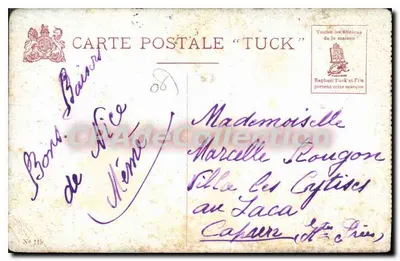 CARTE POSTALE "TUCK"
Toutes les Editions
de la maison
Raphael Tuck et Fils
portent cette marque
Bons Baisers
de Nice
Mémé
Mademoiselle
Marcelle Rougon
Villa les Cytises
au Laca
Capvern (Htes Pnées)
No 115